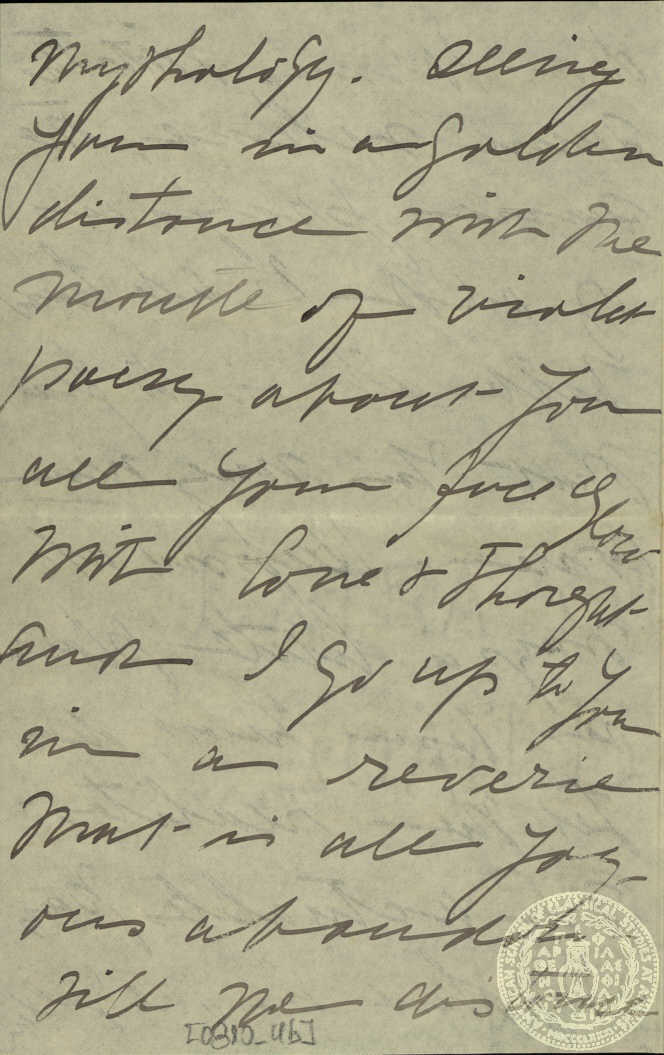 Mythology. Seeing
you in a golden
distance with the
mantle of violet
poesy about you
all your face a glow
with love & thought
and I go up to you
in a reverie
that is all joy-
ous abandon
till the distance